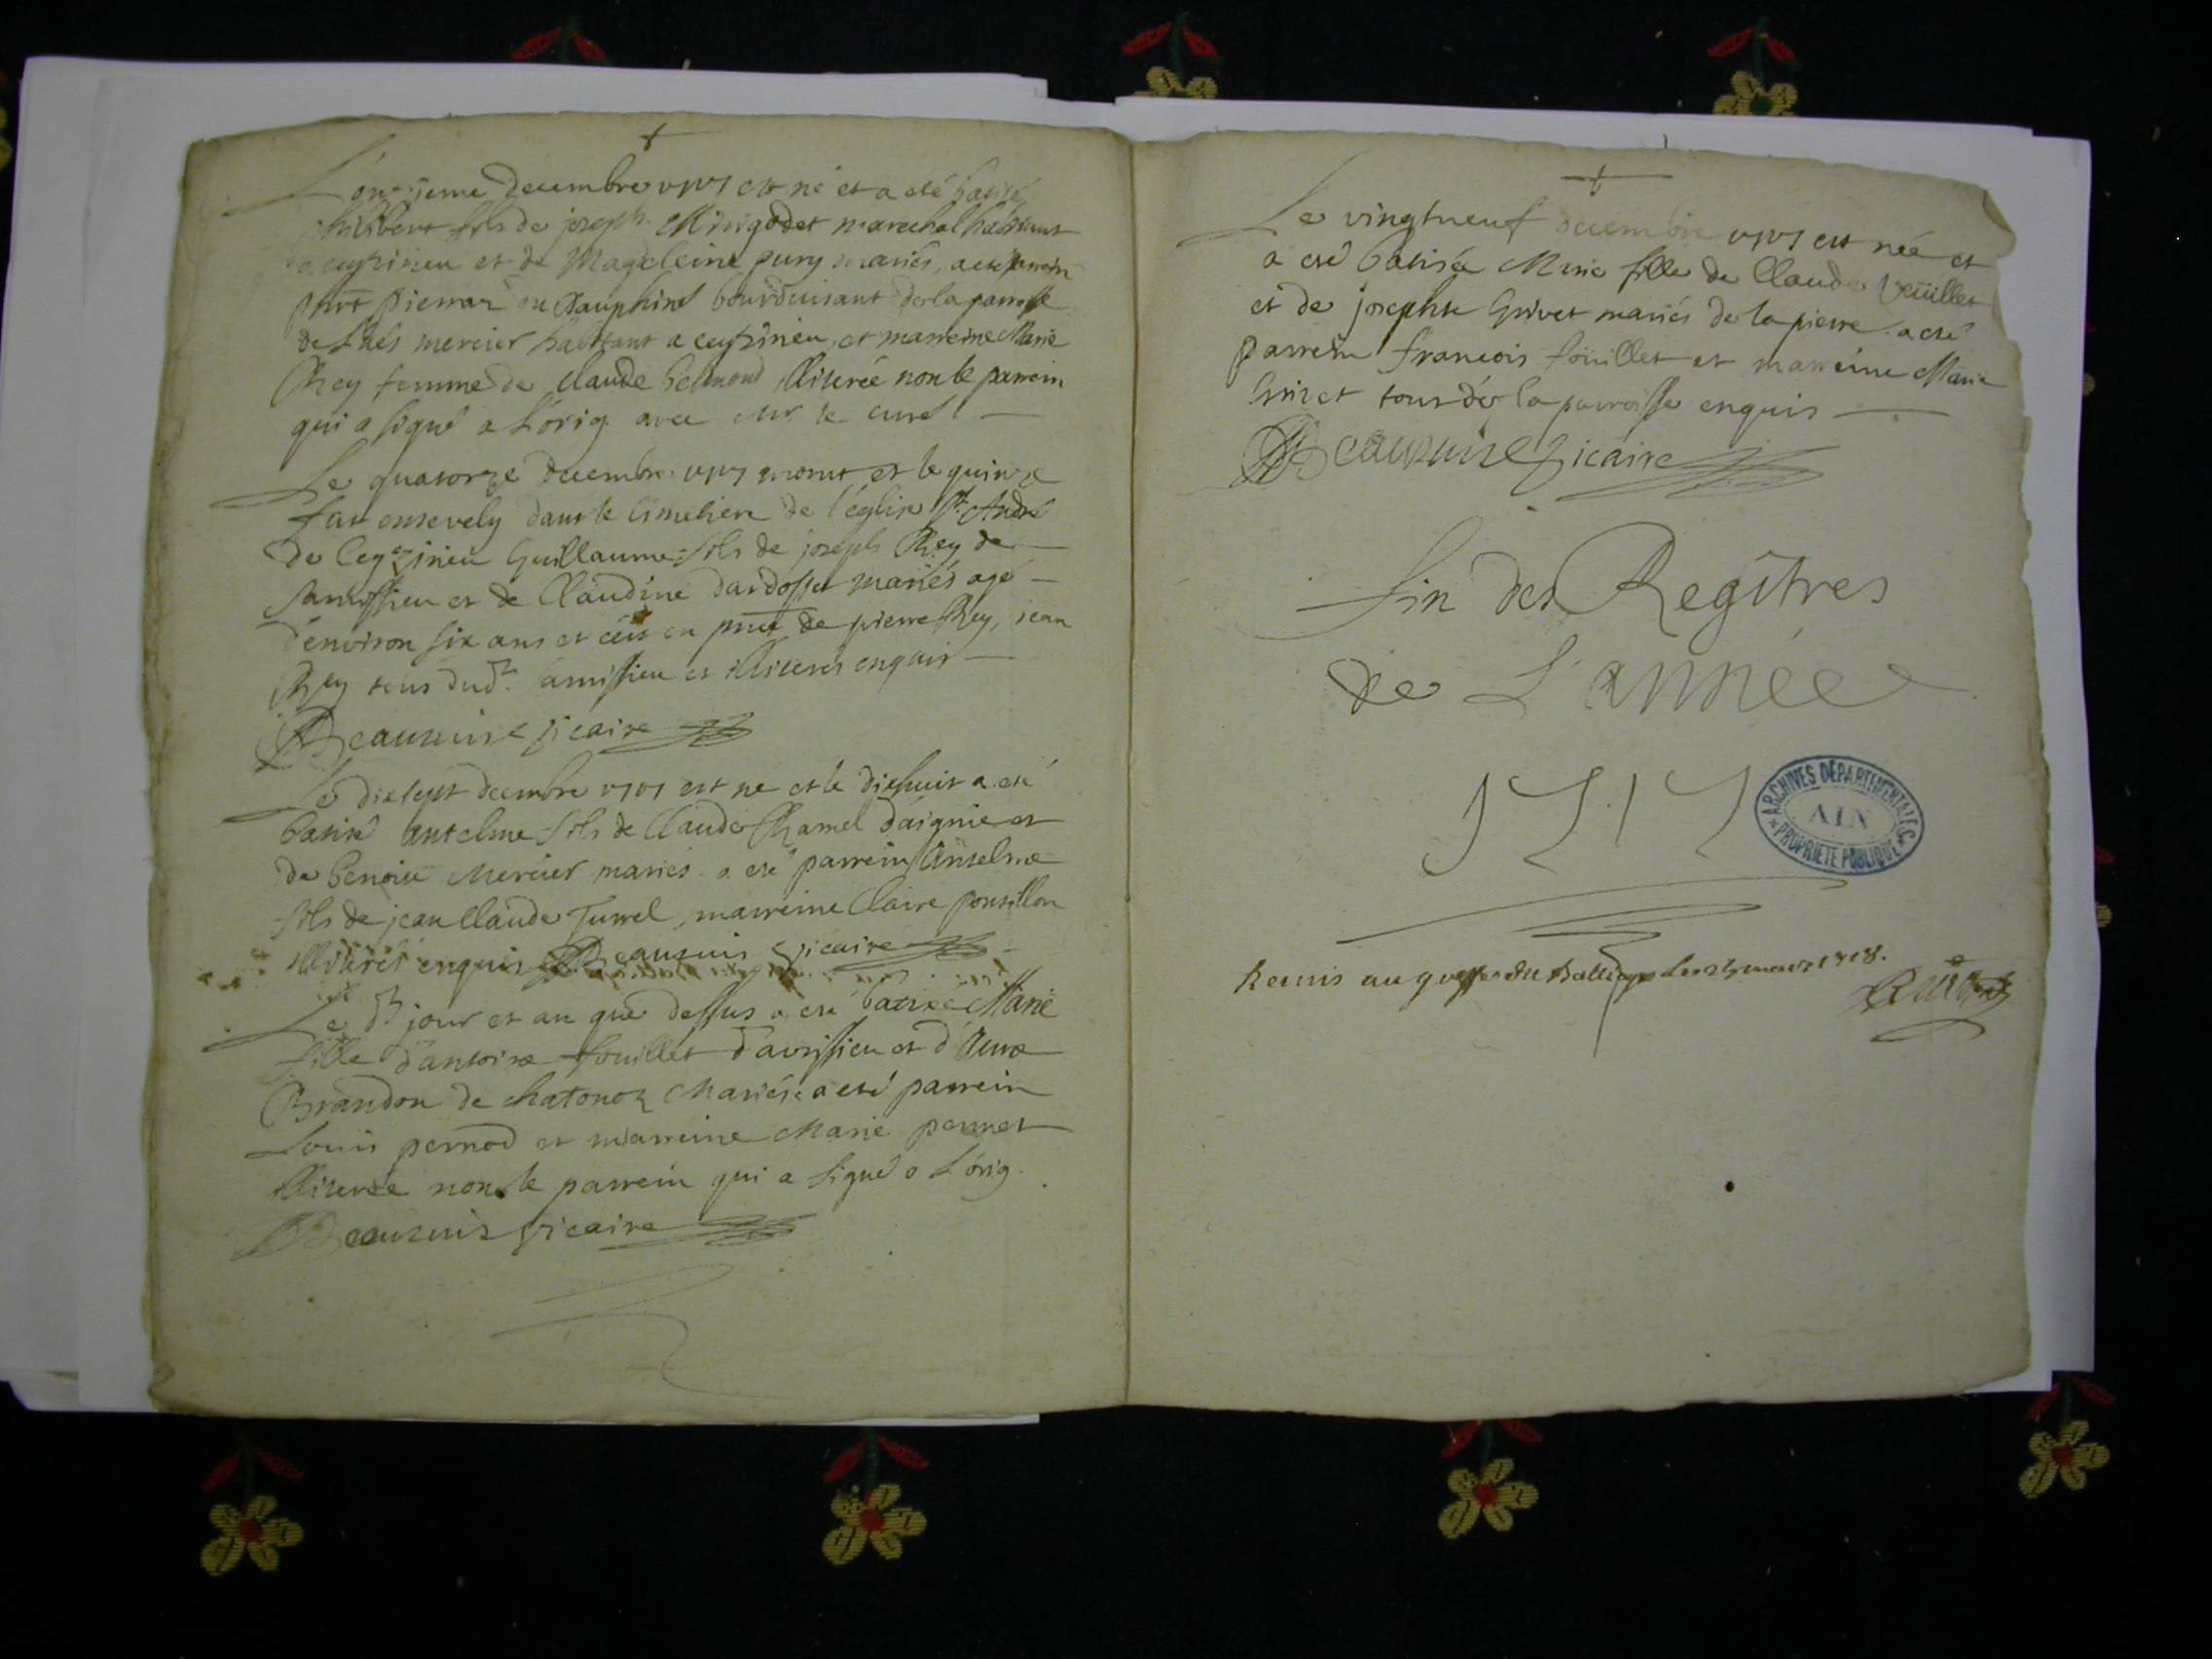 L'onzieme decembre 1717 est né et a esté batisé
philibert fils de joseph Mingodet marechal habitant
a ceyzirieu et de Magdeleine pury mariés, a esté parrein
pierrar du Dauphiné de la parroisse
de mercier habitant a ceyzirieu, et marreine Marie
Rey femme de claude belmond illiterée non le parrein
qui a signé a l'orig. avec Mr. le curé
Le quatorze decembre 1717 morut et le quinze
fut ensevely dans le cimetiere de l'église St. André
de Ceyzirieu Guillaume fils de joseph Rey de
et de Claudine dardosset mariés agé
d'environ six ans et c'est en pnce de pierre Rey, jean
Rey tous dudt. et illiterés enquis
Beaupuis vicaire
Le dixsept decembre 1717 est né et le dixhuit a eté
batisé antelme fils de Claude Chamel d'aignie et
de benoite Mercier mariés a eté parrein Anselme
fils de jean Claude Turrel, marreine Claire ponsillon
illiterés enquis Beaupuis vicaire
Le dt jour et an que dessus a eté batizé Marie
fille d'antoine fouillet d'avrissieu et d'
Brandon de chatonoz Mariés a eté parrein
Louis pernod et marreine Marie pernet
illiterée non le parrein qui a signé a l'orig.
Beaupuis vicaire
Le vingtneuf decembre 1717 est née et
a esté batisée Marie fille de Claude Veüillet
et de josephte Grivet mariés de la pierre a esté
parrein françois foüillet et marreine Marie
Grivet tous de la parroisse enquis
Beaupuis vicaire
fin des Regîtres
de L'année
1717
ARCHIVES DÉPARTEMENTALES
AIN
PROPRIÉTÉ PUBLIQUE
Remis au greffe du Balliage Le 25 mars 1718.